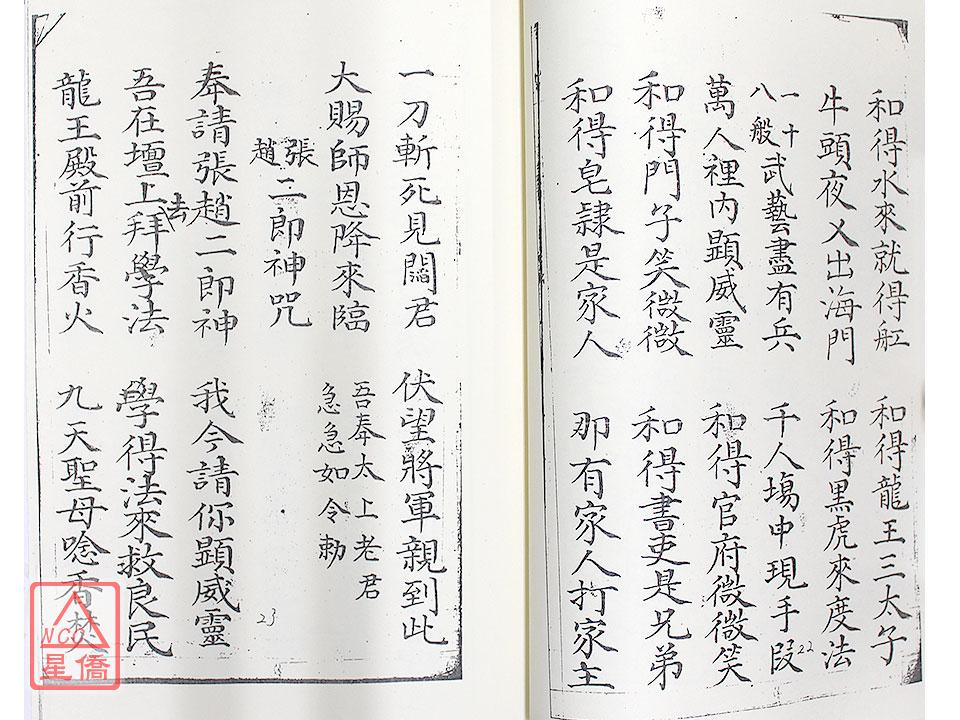 和得水來就得舡　和得龍王三太子
牛頭夜乂出海門　和得黑虎來度法
一十八般武藝盡有兵　千人塲中現手段
萬人裡內顕威靈　和得官府微微笑
和得門子笑微微　和得書吏是兄弟
和得皂隸是家人　那有家人打家主
22
一刀斬死見閻君　伏望將軍親到此
大賜師恩降來臨　吾奉太上老君
急急如令勅
張趙二郎神咒
奉請張趙二郎神　我今請你顕威靈
吾在壇上拜學法　學得法來救良民
法
龍王殿前行香火　九天聖母唸香焚
23
NCC
星僑